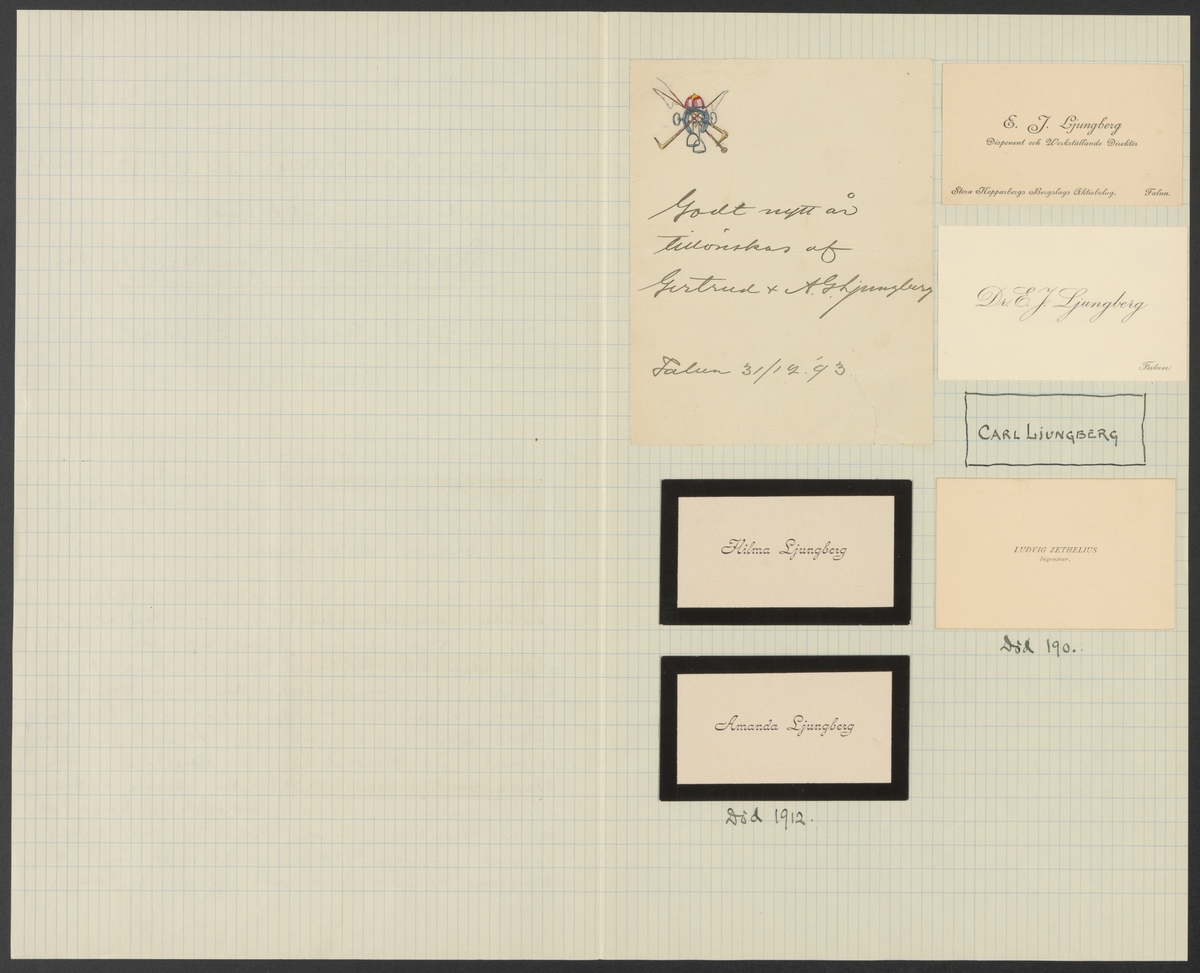 Godt nytt år
tillönskas af
Gertrud + A. G. Ljungberg
Falun 31/12 '93
E. J. Ljungberg
Disponent och Verkställande Direktör
Stora Kopparbergs Bergslags Aktiebolag. Falun.
Dr. E. J. Ljungberg
Falun
CARL LJUNGBERG
Hilma Ljungberg
LUDVIG ZETHELIUS
Ingenieur.
Död 190.
Amanda Ljungberg
Död 1912.